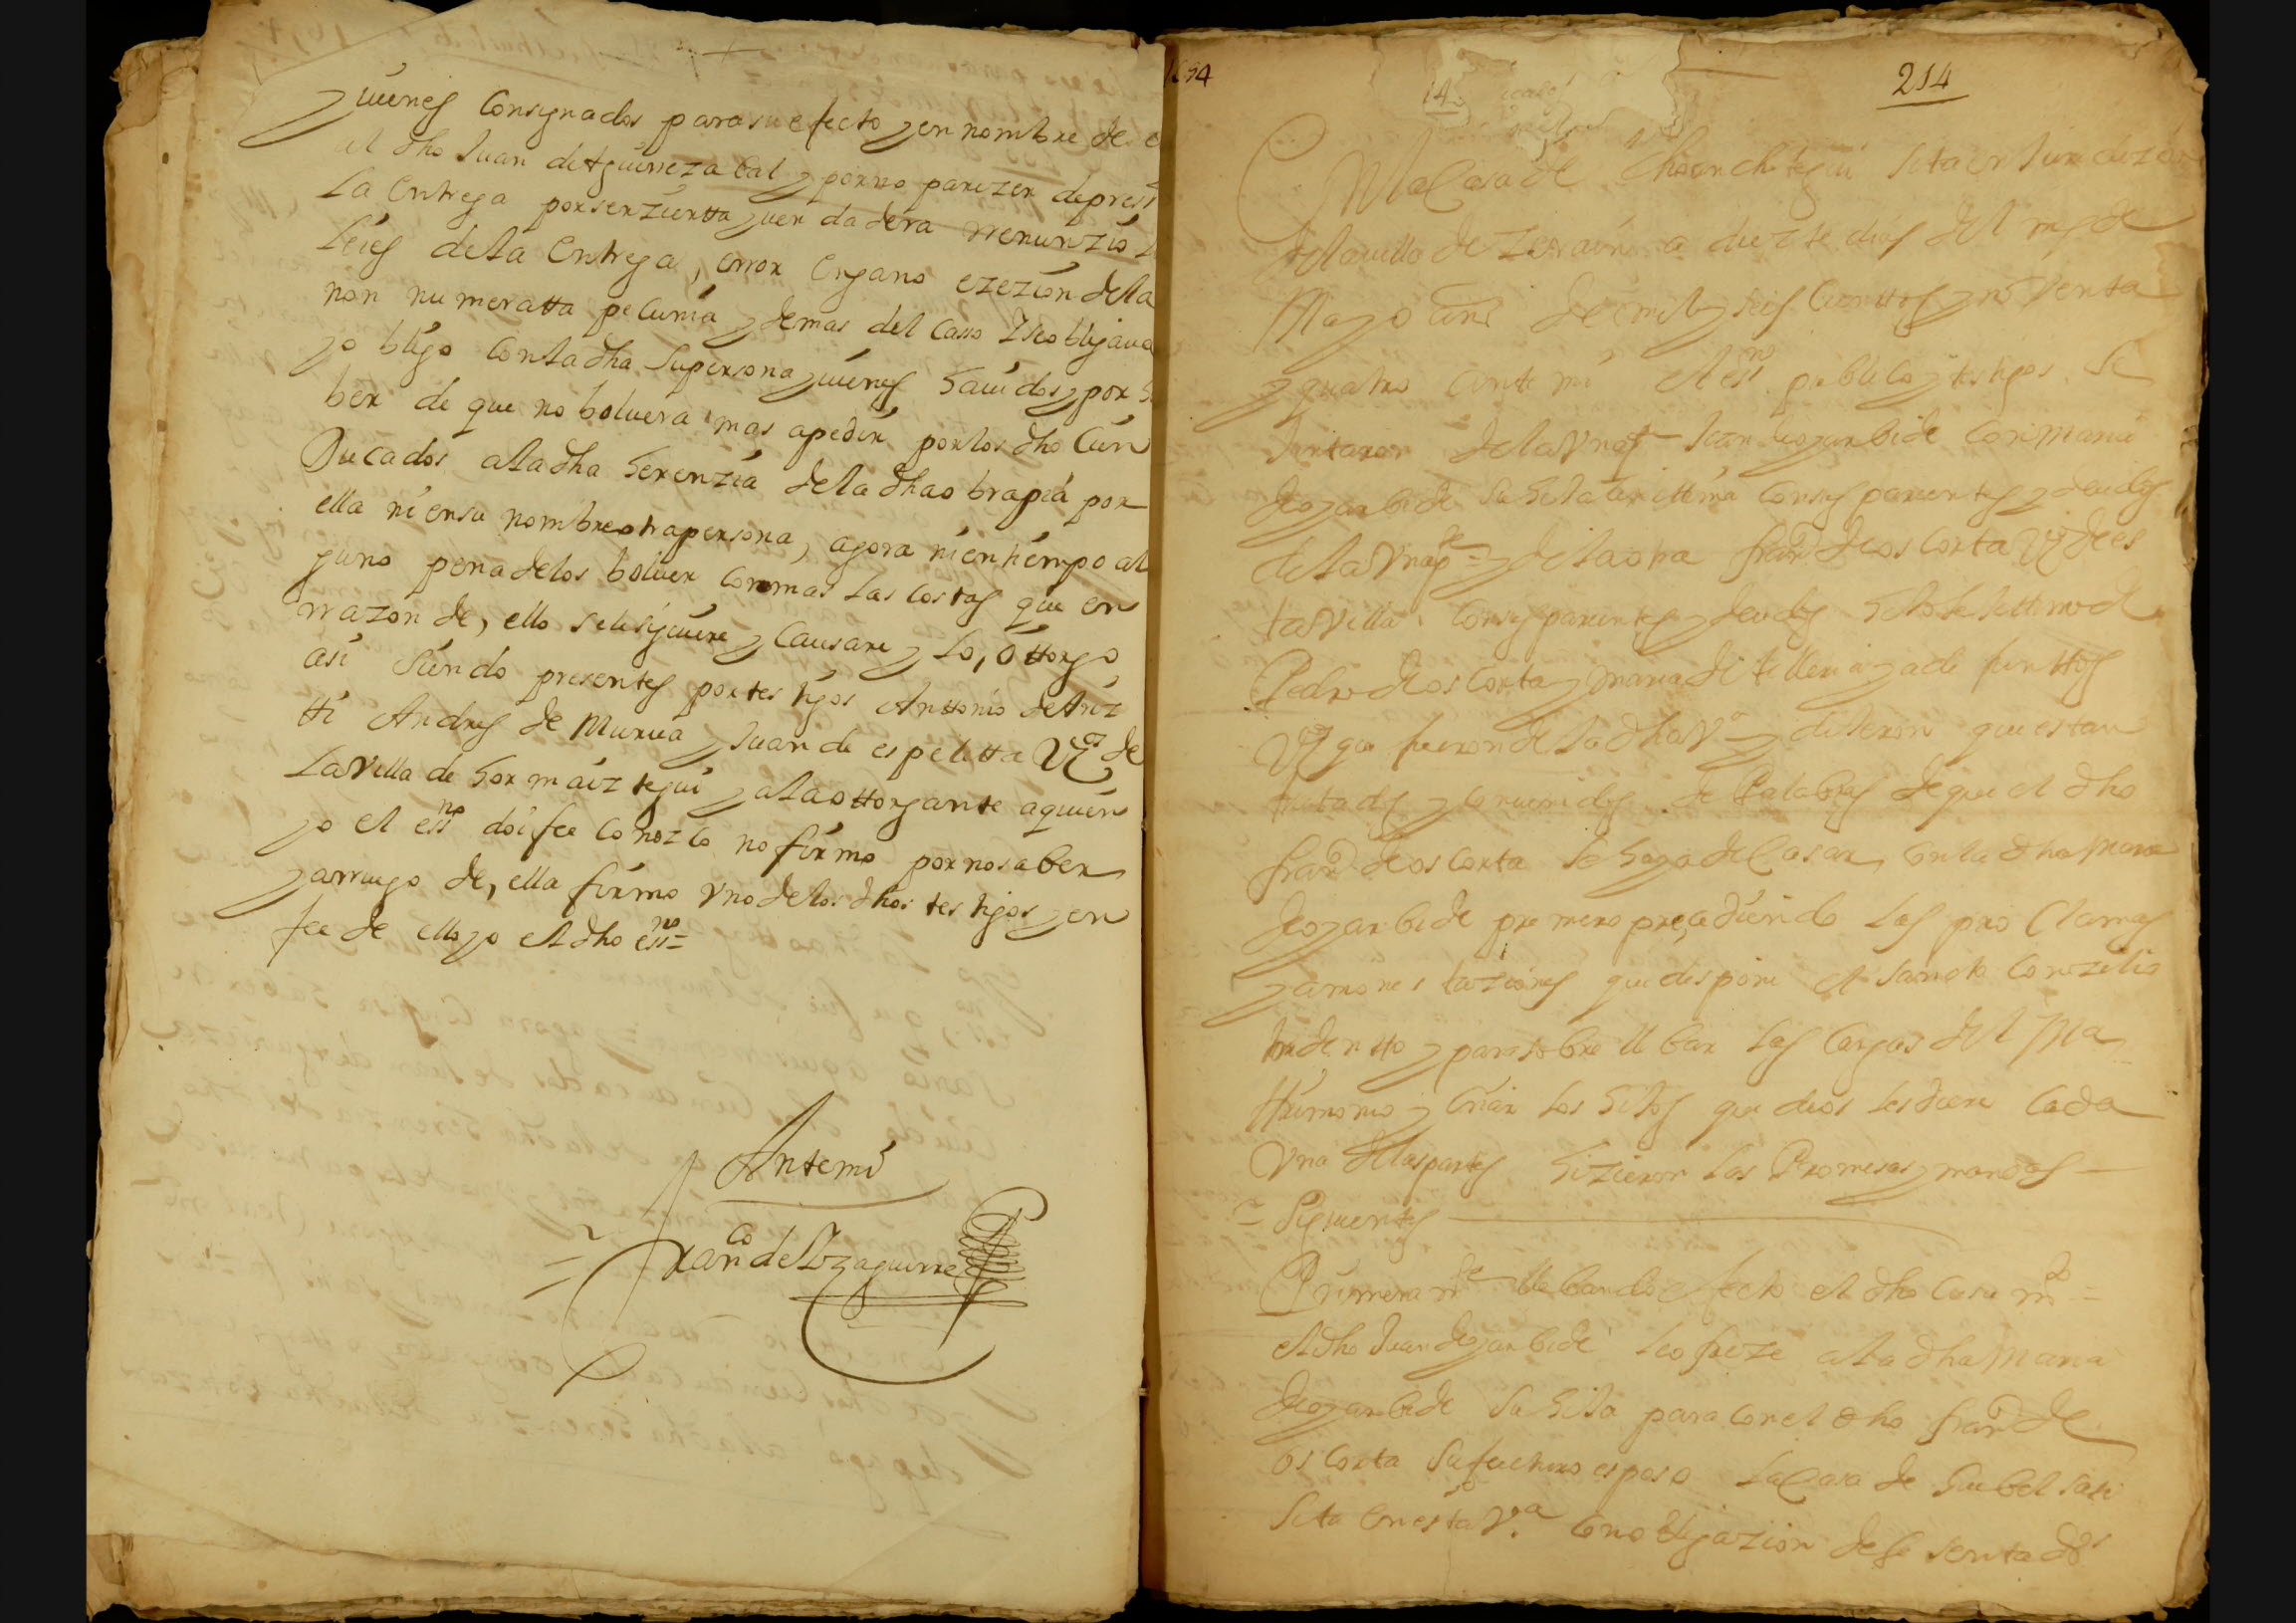 y uienes Consignados para su efecto y en nombre de
el dho Juan de Aguirrezabal y por no parezer de press
La Entrega por ser zierta y uerdadera rrenunzio L
Leies de la Entrega, error Engano ezezion de la
non numeratta pecunia y demas del casso Y se obligaua
y obligo Con la dha Su persona y uienes hauidos y por ha
ber de que no boluera mas a pedir por los dho Cien
Ducados a la dha herenzia de la dha obra pia por
ella ni en su nombre otra persona, agora ni en tiempo al
guno pena de los boluer con mas las costas que en
rrazon de, ello se le siguiere y Causare y lo, ottorgo
asi Siendo presentes por testigos Anttonio de Ariz
tti Andres de Murua y Juan de espeletta Vzos de
La Villa de hormaiztegui y a la ottorgante a quien
yo el essno doi fee Conozco no firmo por no saber
y a rruego de, ella firmo Vno de los dhos testigos y en
fee de ello yo el dho essno=
Ante mi
Franco de Yzaguirre
1694
214
14
En la Casa de sita en Juridizion
de la uilla de Zerain a diez y siete dias del mes de
Mayo año de mil y seis cienttos y nobenta
y quatro ante mi el essno publico y testigos Se
Juntaron de la Vna pte Juan de oyarbide Con Maria
de oyarbide Su hija lexittima Con sus parientes y deudos
de la Vna pte = y de la otra franco de oscorta Vzo de es
ta Villa Con sus parientes y deudos hijo lexittimo de
Pedro de oscorta y Maria de telleria ya difunttos
Vzos que fueron de la dha Va y dixeron que estan
tratados y Conuenidos de Palabras de que el dho
franco de oscorta Se haya de Casar Con la dha Maria
de oyarbide primero prezediendo las proclamas
y amonestaziones que dispone el Sancto Conzilio
tridentto y para sobrellebar las Cargas del Ma
ttrimonio y Criar los hijos que dios les diere Cada
Vna de las partes hizieron las Promesas y mandas
Siguientes
Primeramte llebando efecto el dho Casamto =
el dho Juan de oyarbide le ofreze a la dha Maria
de oyarbide Su hija para con el dho franco de
oscorta Su futuro esposo La Casa de
Sita en esta Va Con obligazion de sesenta ds